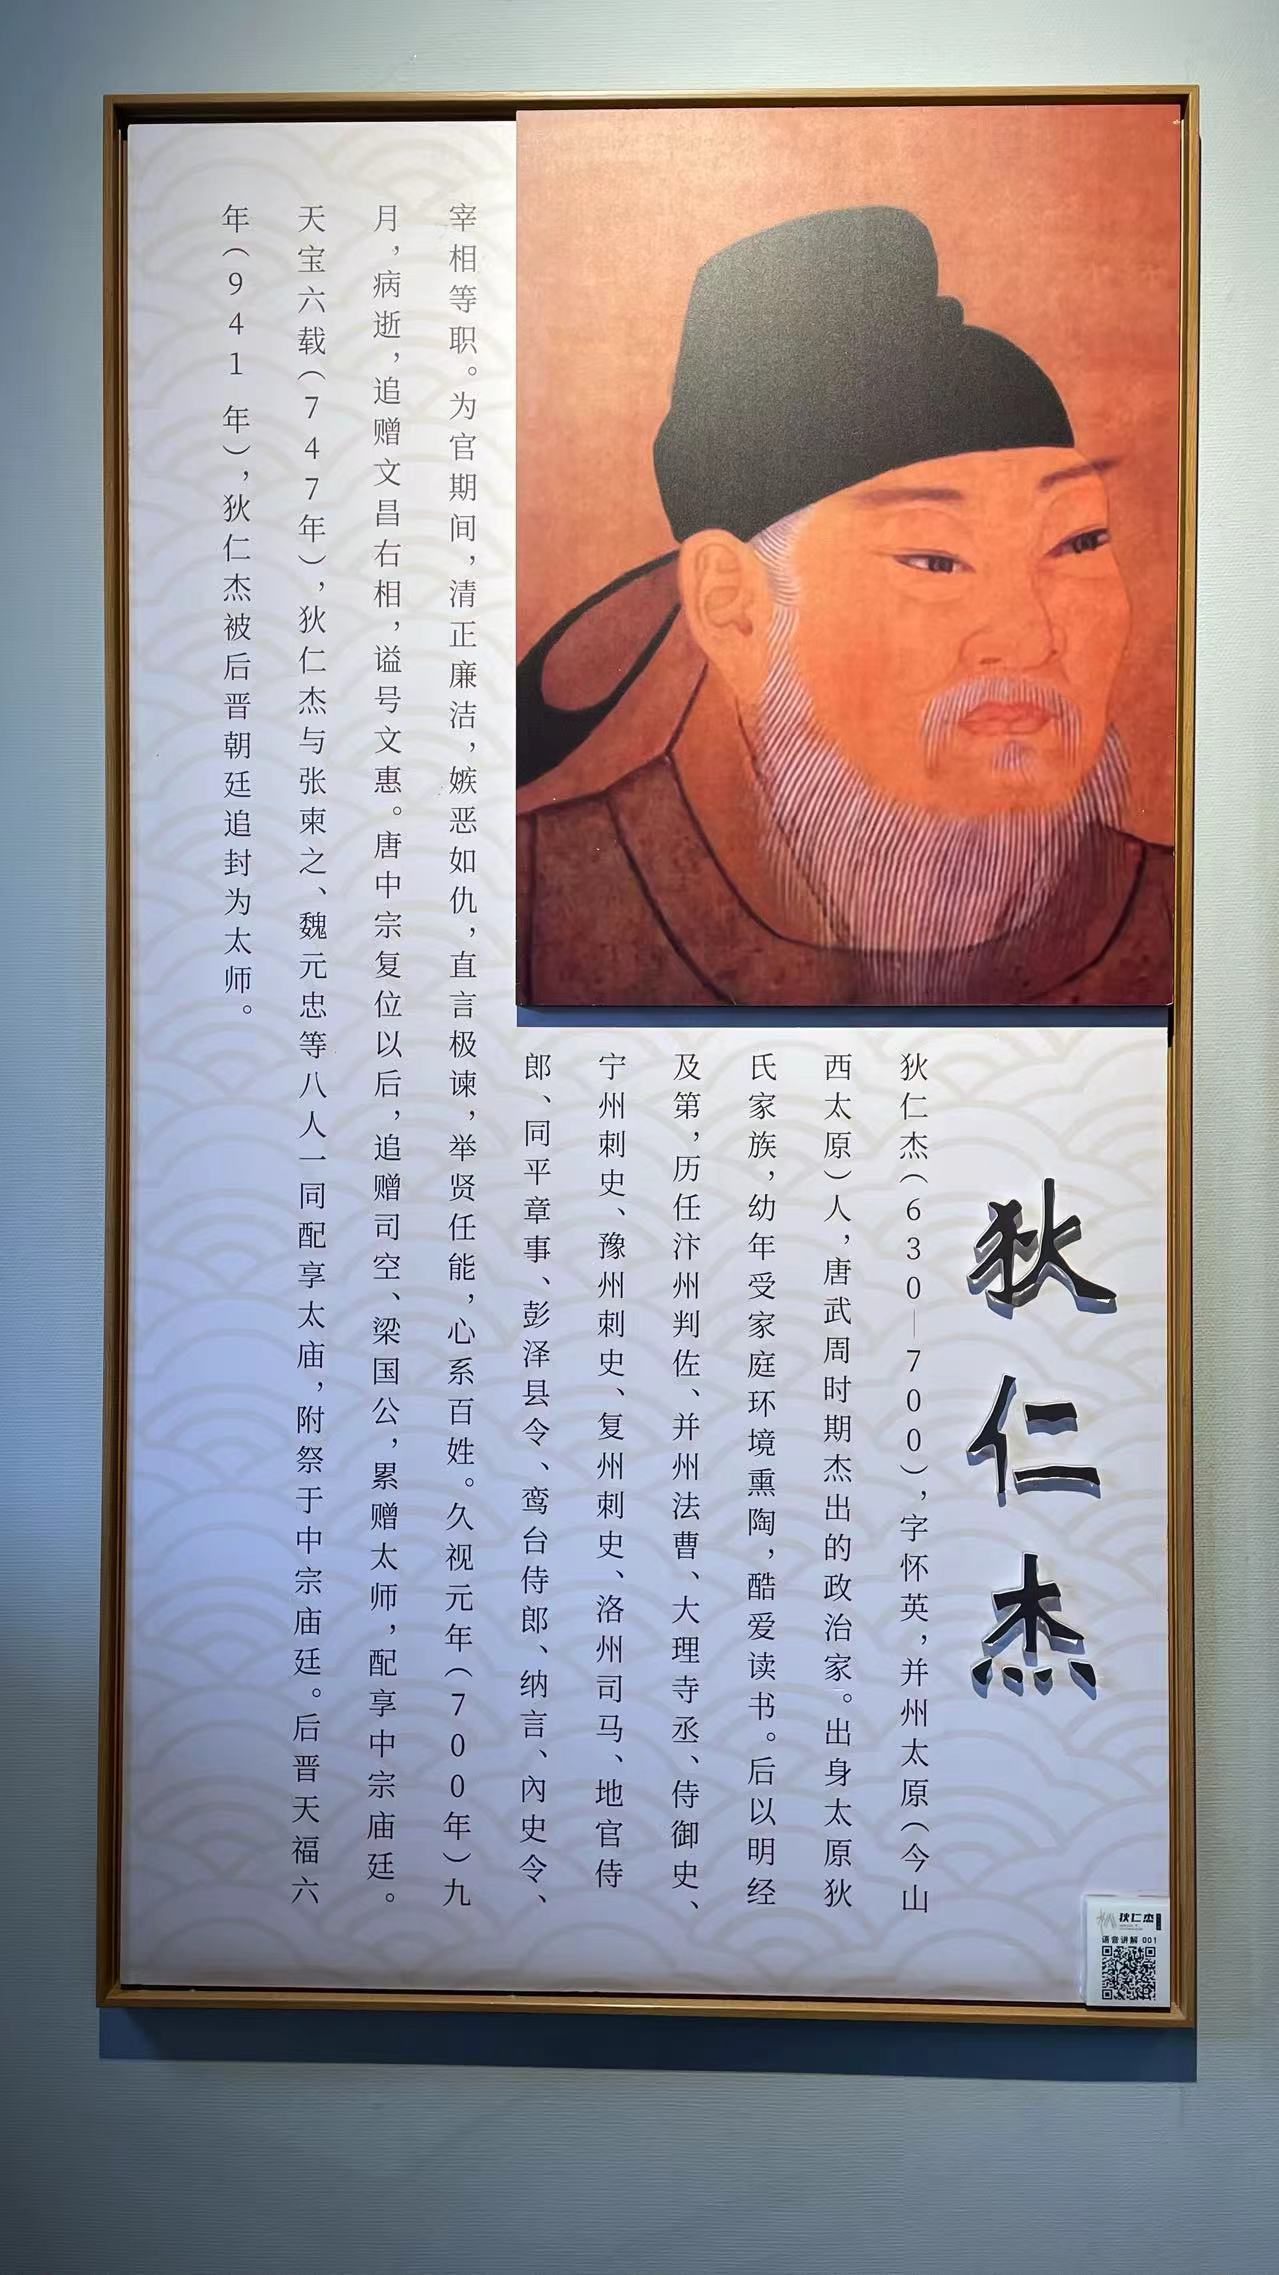 狄仁杰
狄仁杰（630—700），字怀英，并州太原（今山
西太原）人，唐武周时期杰出的政治家。出身太原狄
氏家族，幼年受家庭环境熏陶，酷爱读书。后以明经
及第，历任汴州判佐、并州法曹、大理寺丞、侍御史、
宁州刺史、豫州刺史、复州刺史、洛州司马、地官侍
郎、同平章事、彭泽县令、鸾台侍郎、纳言、内史令、
宰相等职。为官期间，清正廉洁，嫉恶如仇，直言极谏，举贤任能，心系百姓。久视元年（700年）九
月，病逝，追赠文昌右相，谥号文惠。唐中宗复位以后，追赠司空、梁国公，累赠太师，配享中宗庙廷。
天宝六载（747年），狄仁杰与张柬之、魏元忠等八人一同配享太庙，附祭于中宗庙廷。后晋天福六
年（941年），狄仁杰被后晋朝廷追封为太师。
狄仁杰
语音讲解 001